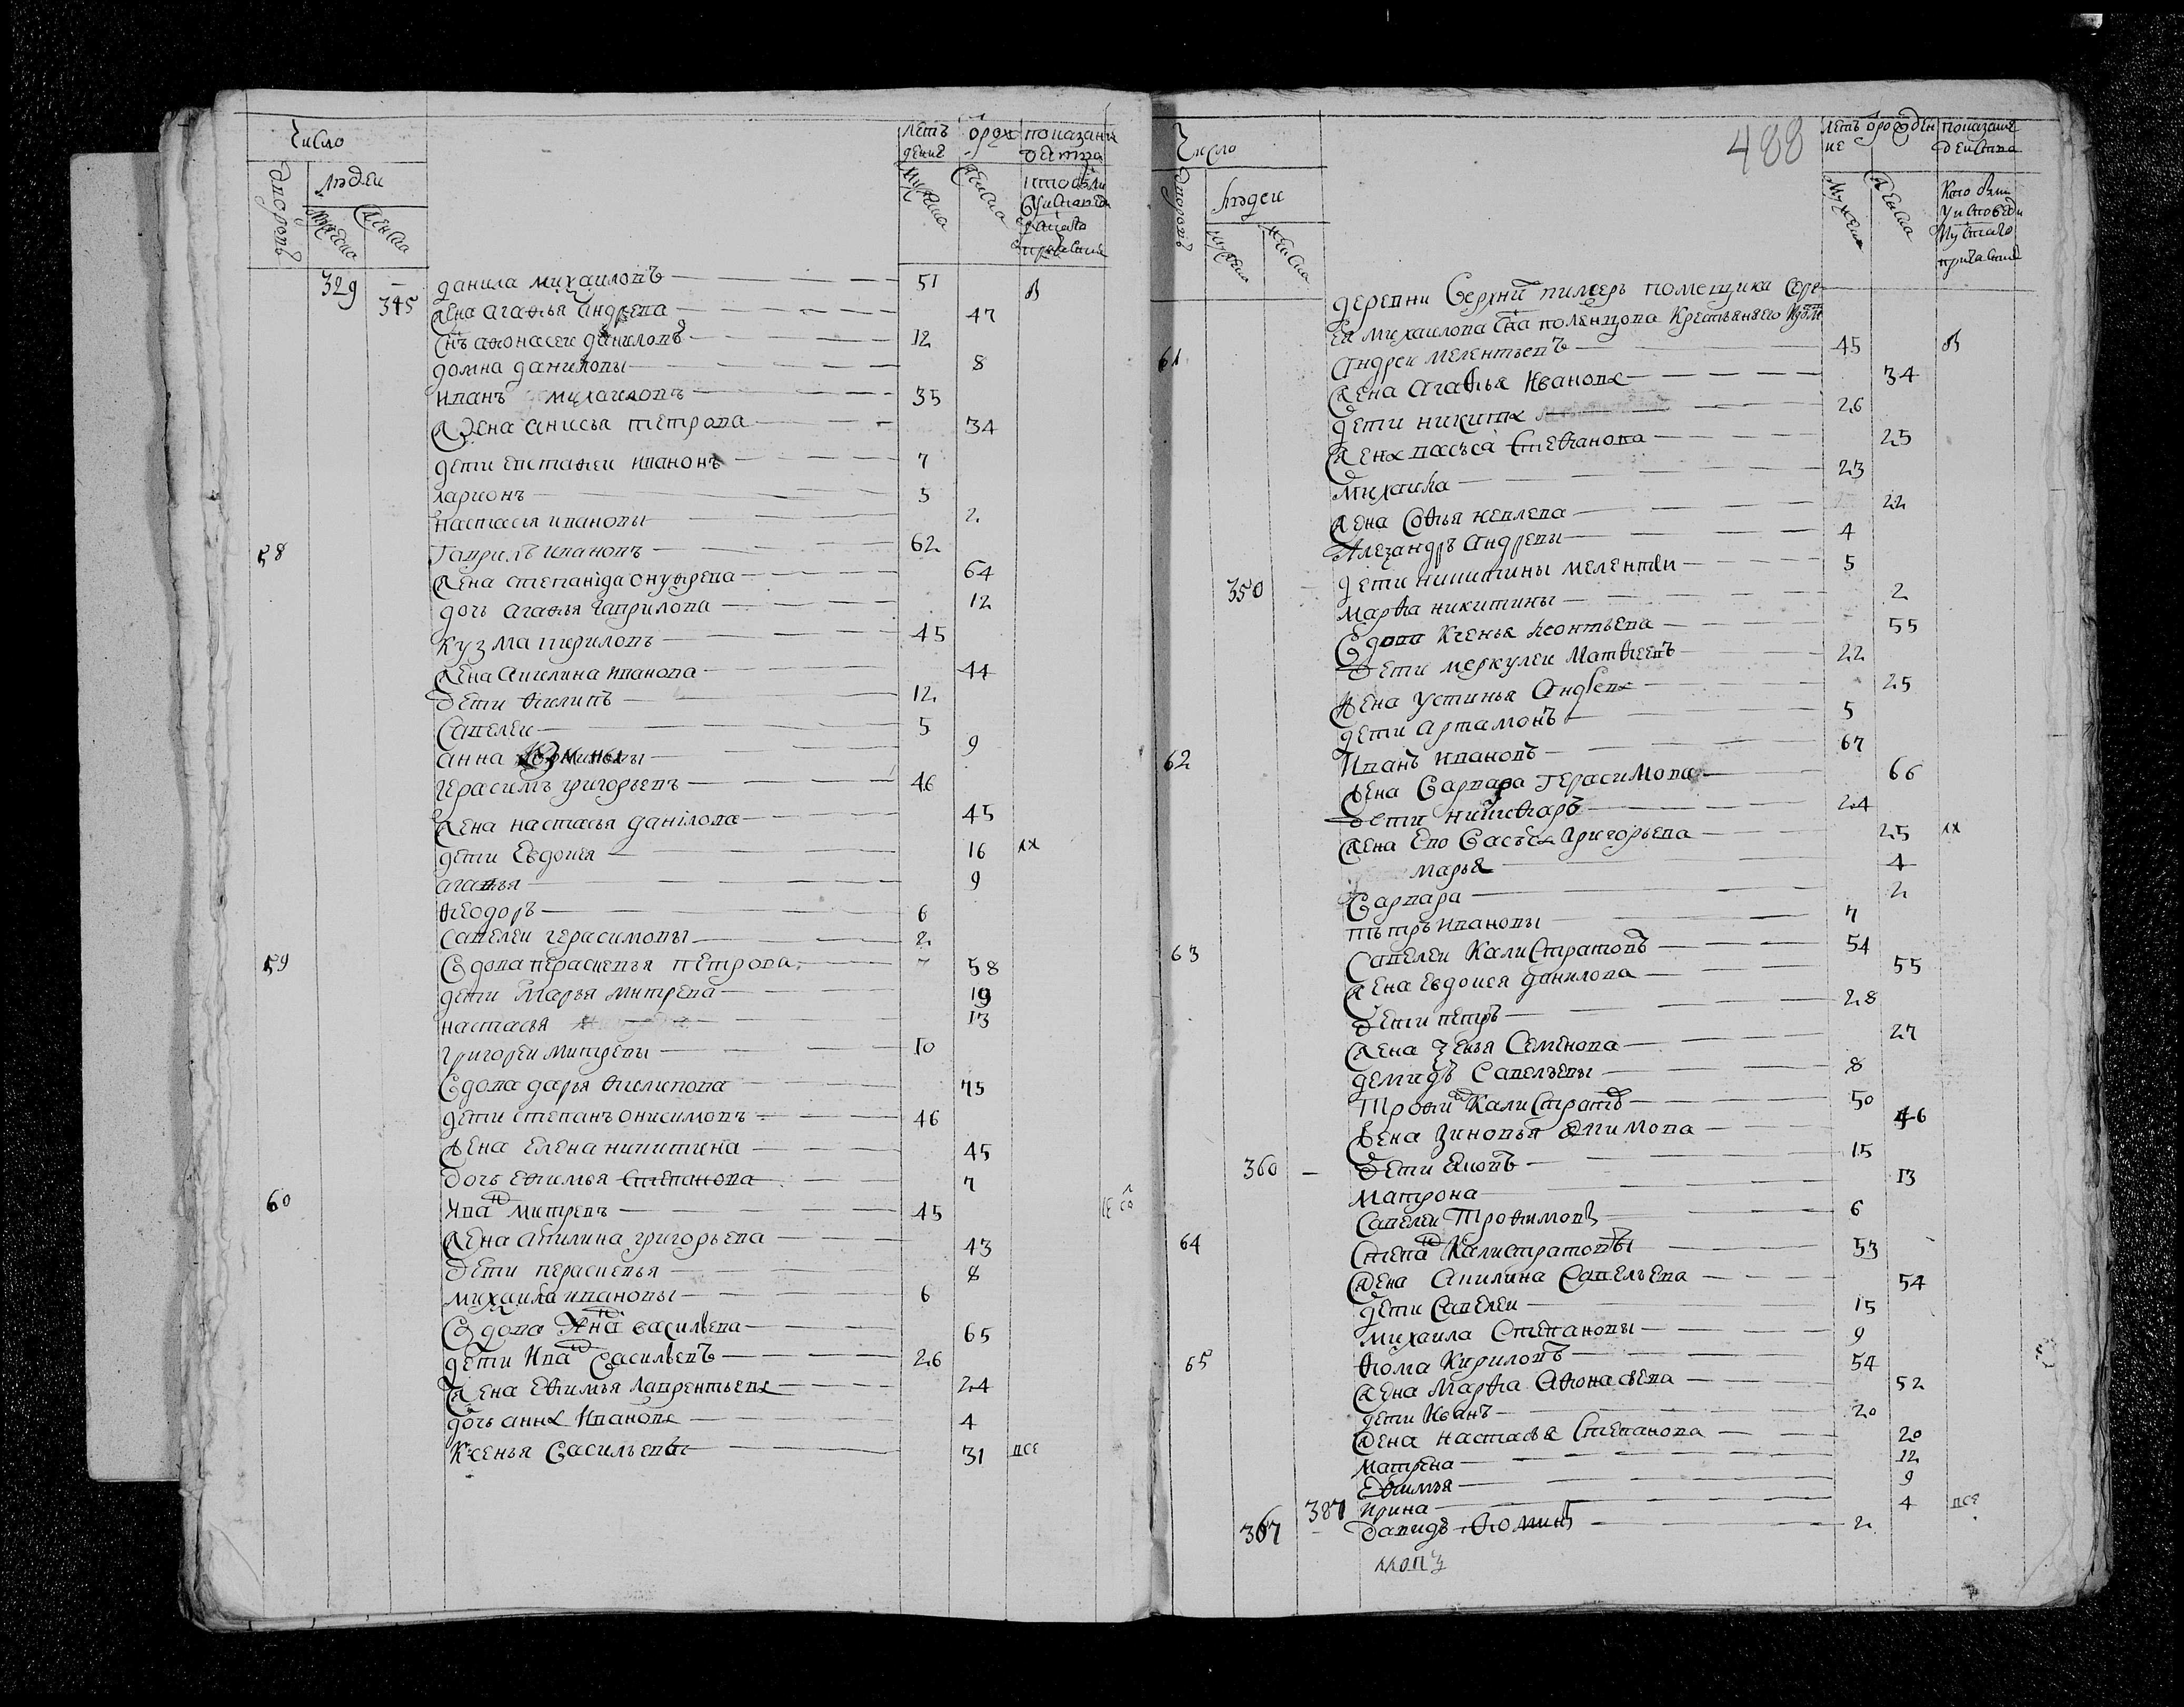 число
дворовъ
людеи
мужеска
женска
летъ
рож
дение
мужеска
женска
показание
329 - данила михаиловъ 51
345 жена агафья андрева 47
снъ афонасеи даниловъ 12
домна даниловы 8
иванъ михаиловъ 35
жена анисья петрова 34
дети евстафеи ивановъ 7
ларионъ 5
настасья ивановы 2
58 гаврилъ ивановъ 62
жена степанида онуфрева 64
дочь агафья гаврилова 12
кузма гвриловъ 45
жена акилина иванова 44
дети филипъ 12
савелеи 5
анна 9
герасимъ григорьевъ 46
жена настасья данілова 45
дети евдокея 16
агафья 9
феодоръ 6
савелеи герасимовы 2
59 вдова пераскевья петрова 58
дети марья митрева 19
настасья 13
григореи митревы 10
вдова дарья филипова 75
дети степанъ онисимовъ 46
жена елена никитина 45
дочь ефимья степанова 7
60 ива митревъ 45
жена акилина григорьева 43
дети пераскевья 8
михаила ивановы 6
вдова анна васильева 65
дети ива васильевъ 26
жена ефимья лаврентьева 24
дочь анна иванова 4
ксенья васильева 31 все
488
число
дворовъ
людеи
мужеска
женска
летъ орожден
ие
мужеска
женска
показание
деиства
кто были
у исповеди
и у святаго
причастия
деревни верхни помещика Серг
еи михаилова сна поленцова крестьян ево
61 андреи мелентьевъ 45
жена агафья иванова 34
дети никита 26
жена васьса стефанова 25
михаила 23
жена софья иевлева 22
алезандръ андревы 4
350 - дети никитины мелентеи 5
марфа никитины 2
вдова ксенья леонтьева 55
дети меркулеи матфеевъ 22
жена устинья андрева 25
дети артамонъ 5
62 иванъ ивановъ 67
жена варвара герасимова 66
дети никифаръ 24
жена григорьева 25
марья 4
варвара 2
петръ ивановы 7
63 савелеи калистратовъ 54
жена евдокея данилова 55
дети петръ 28
жена семенова 27
демидъ савельевы 8
трофи калистратовъ 50
жена зиновья екимова 46
360 - дети 15
матрона 13
савелеи трофимовъ 6
64 степа калистратовы 53
жена акилина савельева 54
дети савелеи 15
михаила степановы 9
65 фома кириловъ 54
жена марфа афонасьева 52
дети иванъ 20
жена настасья степанова 20
матрена 12
ефимья 9
387 ирина 4 все
367 - давидъ фомины 2